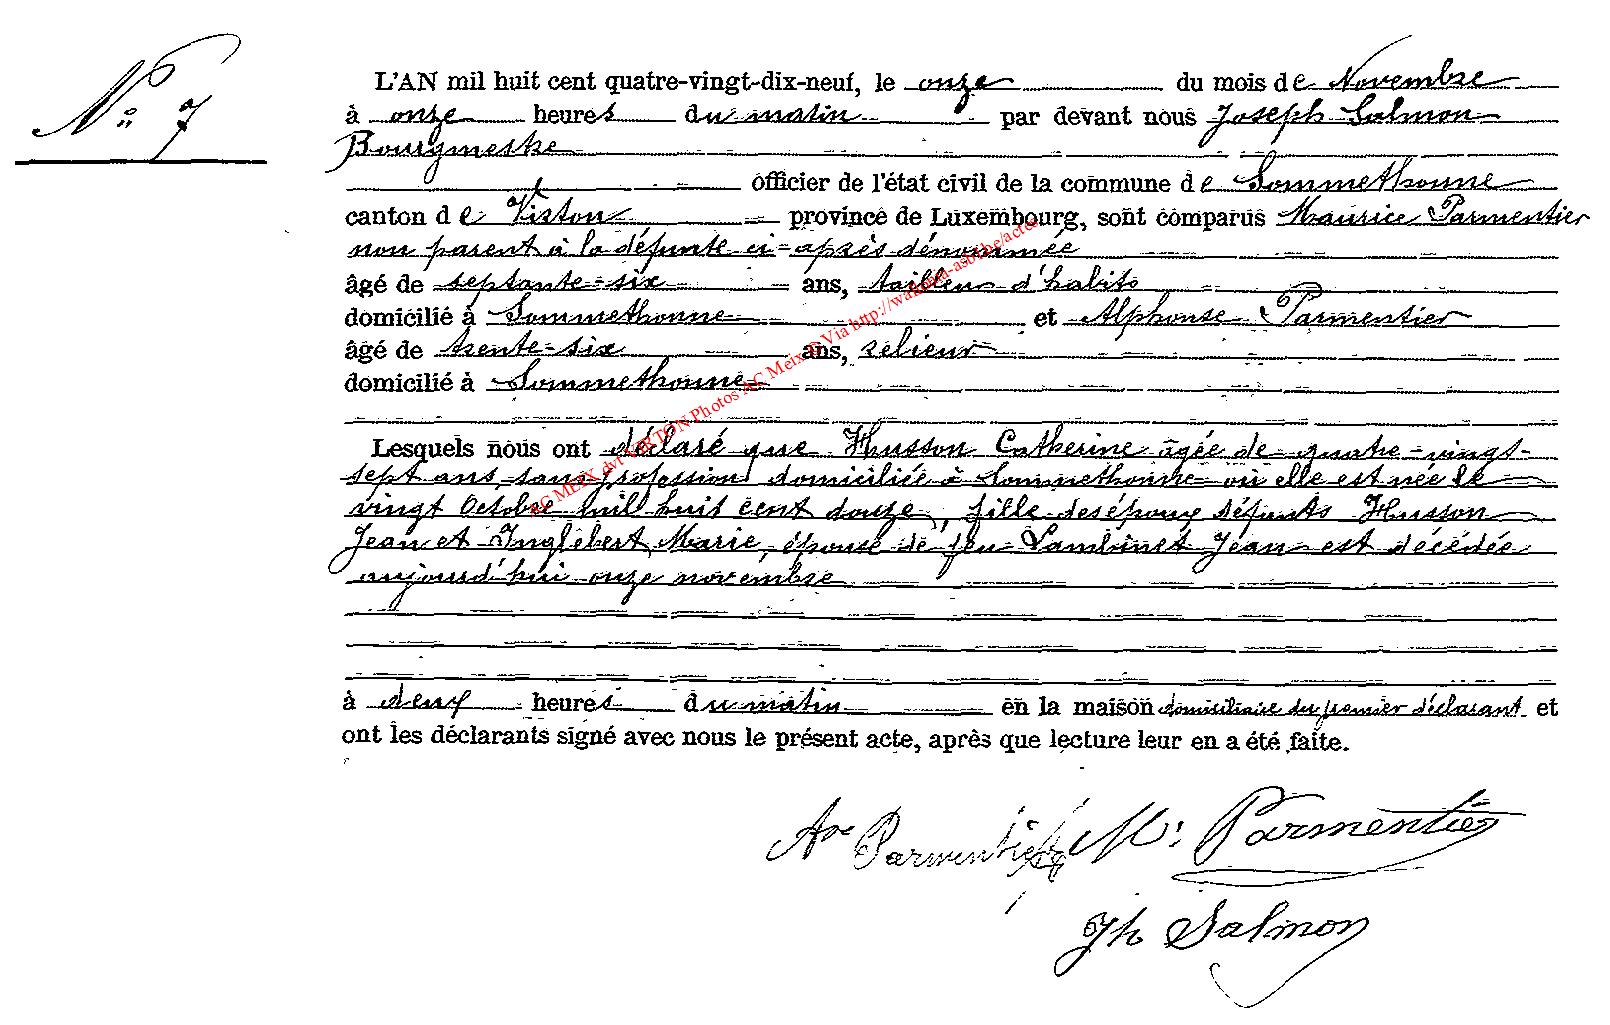 N° 7
L'AN mil huit cent quatre-vingt-dix-neuf, le onze du mois de Novembre
à onze heures du matin par devant nous Joseph Salmon
Bourgmestre
officier de l'état civil de la commune de Sommethonne
canton de Virton province de Luxembourg, sont comparus Maurice Parmentier
non parent à la défunte ci-après dénommée
âgé de septante-six ans, tailleur d'habits
domicilié à Sommethonne et Alphonse Parmentier
âgé de trente-six ans, relieur
domicilié à Sommethonne
Lesquels nous ont déclaré que Husson Catherine âgée de quatre-vingt-
sept ans, sans profession domiciliée à Sommethonne où elle est née le
vingt Octobre mil huit cent douze, fille des époux défunts Husson
Jean et Inglebert Marie, épouse de feu Lambinet Jean est décédée
aujourd'hui onze novembre
à deux heures du matin en la maison domiciliaire du premier déclarant et
ont les déclarants signé avec nous le présent acte, après que lecture leur en a été faite.
Are Parmentier M. Parmentier
Jh Salmon
AC MEIX dvt VIRTON Photos AC Meix © Via http://www.